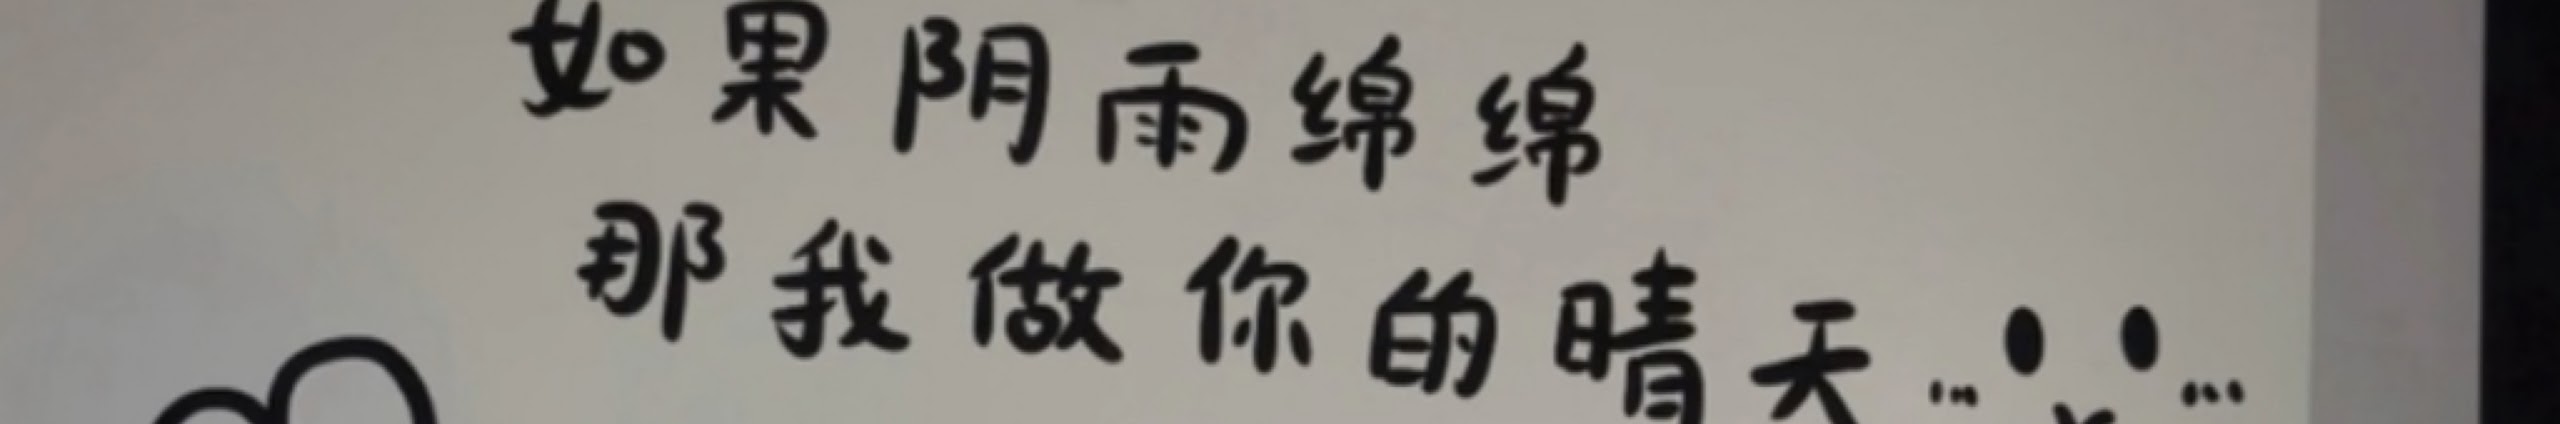 如果阴雨绵绵
那我做你的晴天